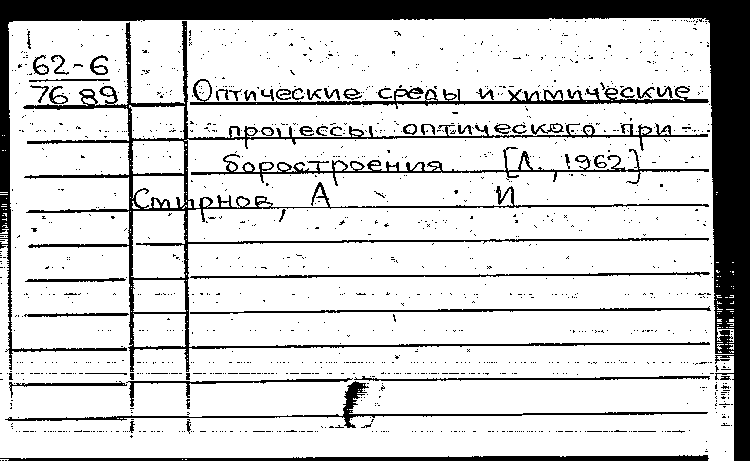 62-6
7689
Оптические среды и химические
процессы оптического при-
боростроения [Л., 1962]
Смирнов, А И